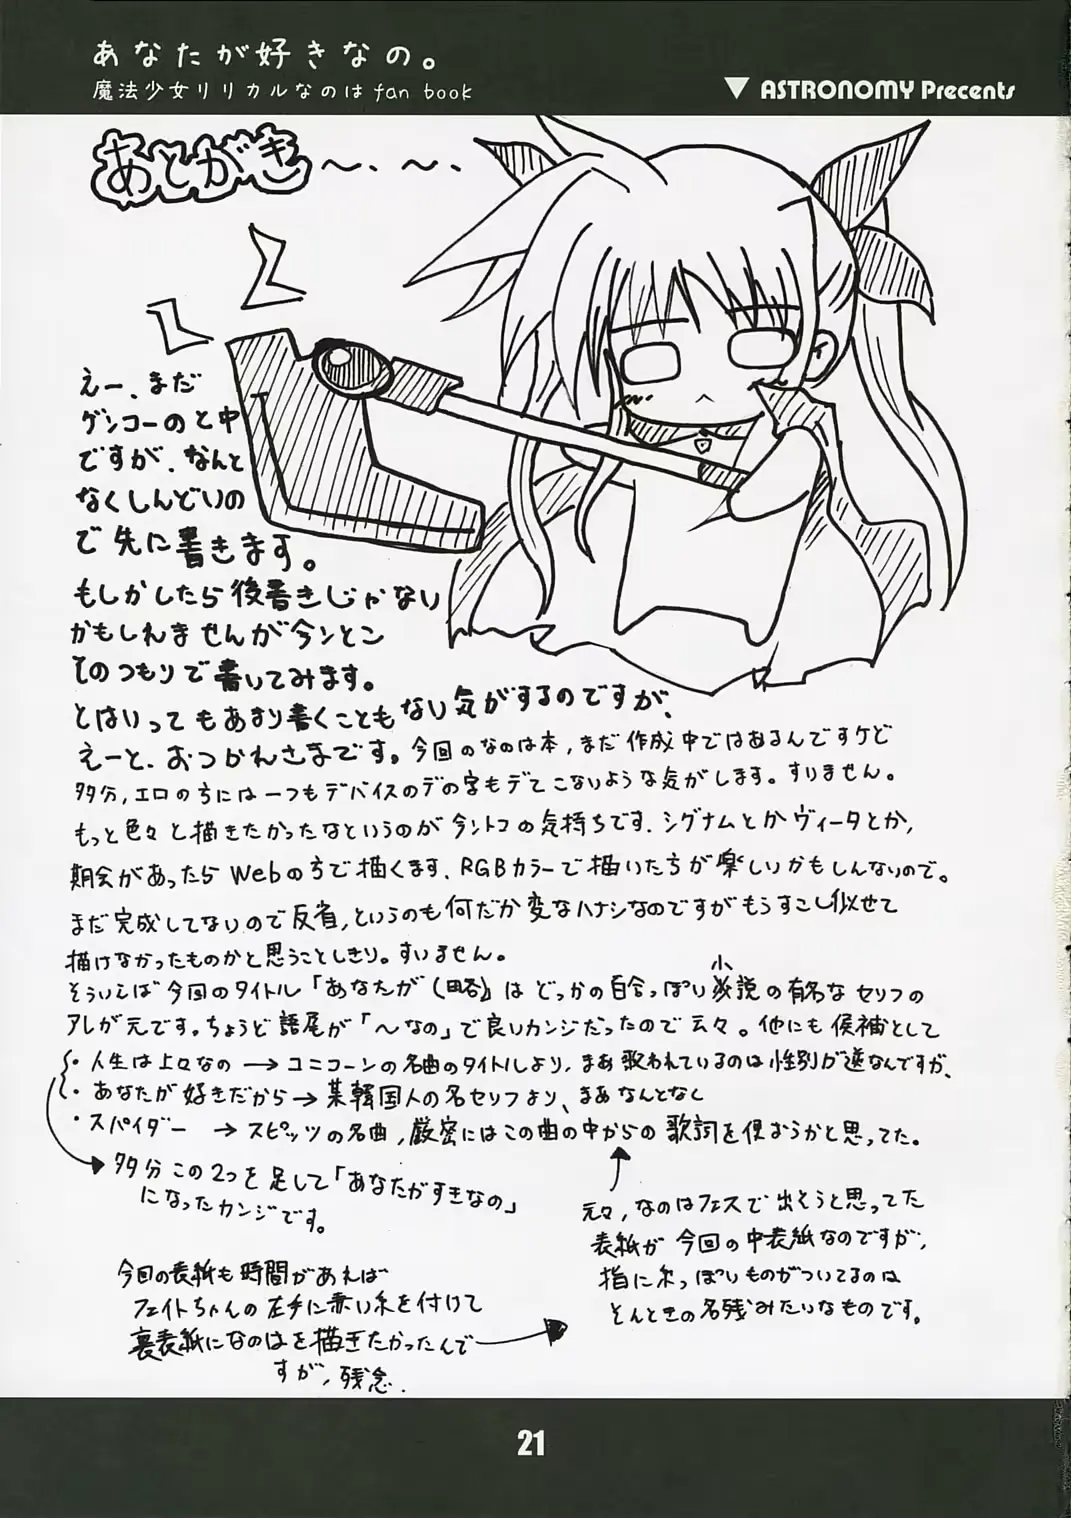 あなたが好きなの。
魔法少女リリカルなのは fan book
▼ ASTRONOMY Precents
あとがき〜、〜、
えー、まだ
ゲンコーのと中
ですが、なんと
なくしんどいの
で先に書きます。
もしかしたら後書きじゃない
かもしれませんが今ンとこ
そのつもりで書いてみます。
とはいってもあまり書くこともない気がするのですが、
えーと、おつかれさまです。今回のなのは本，まだ作成中ではあるんですケど
多分，エロのちには一つもデバイスのデの字もデてこないような気がします。すいません。
もっと色々と描きたかったなというのが今ントコの気持ちです．シグナムとかヴィータとか，
期会があったらWebの方で描くます、RGBカラーで描いた方が楽しいかもしんないので。
まだ完成してないので反省，というのも何だか変なハナシなのですがもうすこし似せて
描けなかったものかと思うことしきり。すいません。
そういえば今回のタイトル「あなたが(略)」はどっかの百合っぽい小説の有名なセリフの
アレが元です。ちょうど語尾が「〜なの」で良いカンジだったので云々。他にも候補として
・人生は上々なの → ユニコーンの名曲のタイトルより，まあ歌われているのは性別が逆なんですが、
・あなたが好きだから → 某韓国人の名セリフより、まあなんとなく
・スパイダー → スピッツの名曲，厳密にはこの曲の中からの歌詞を使おうかと思ってた。
多分この2つを足して「あなたがすきなの」
になったカンジです。
元々，なのはフェスで出そうと思ってた
表紙が今回の中表紙なのですが，
指に糸っぽいものがついてるのは
そんときの名残みたいなものです。
今回の表紙も時間があれば
フェイトちゃんの左手に赤い糸を付けて
裏表紙になのはを描きたかったんで
すが，残念．
21